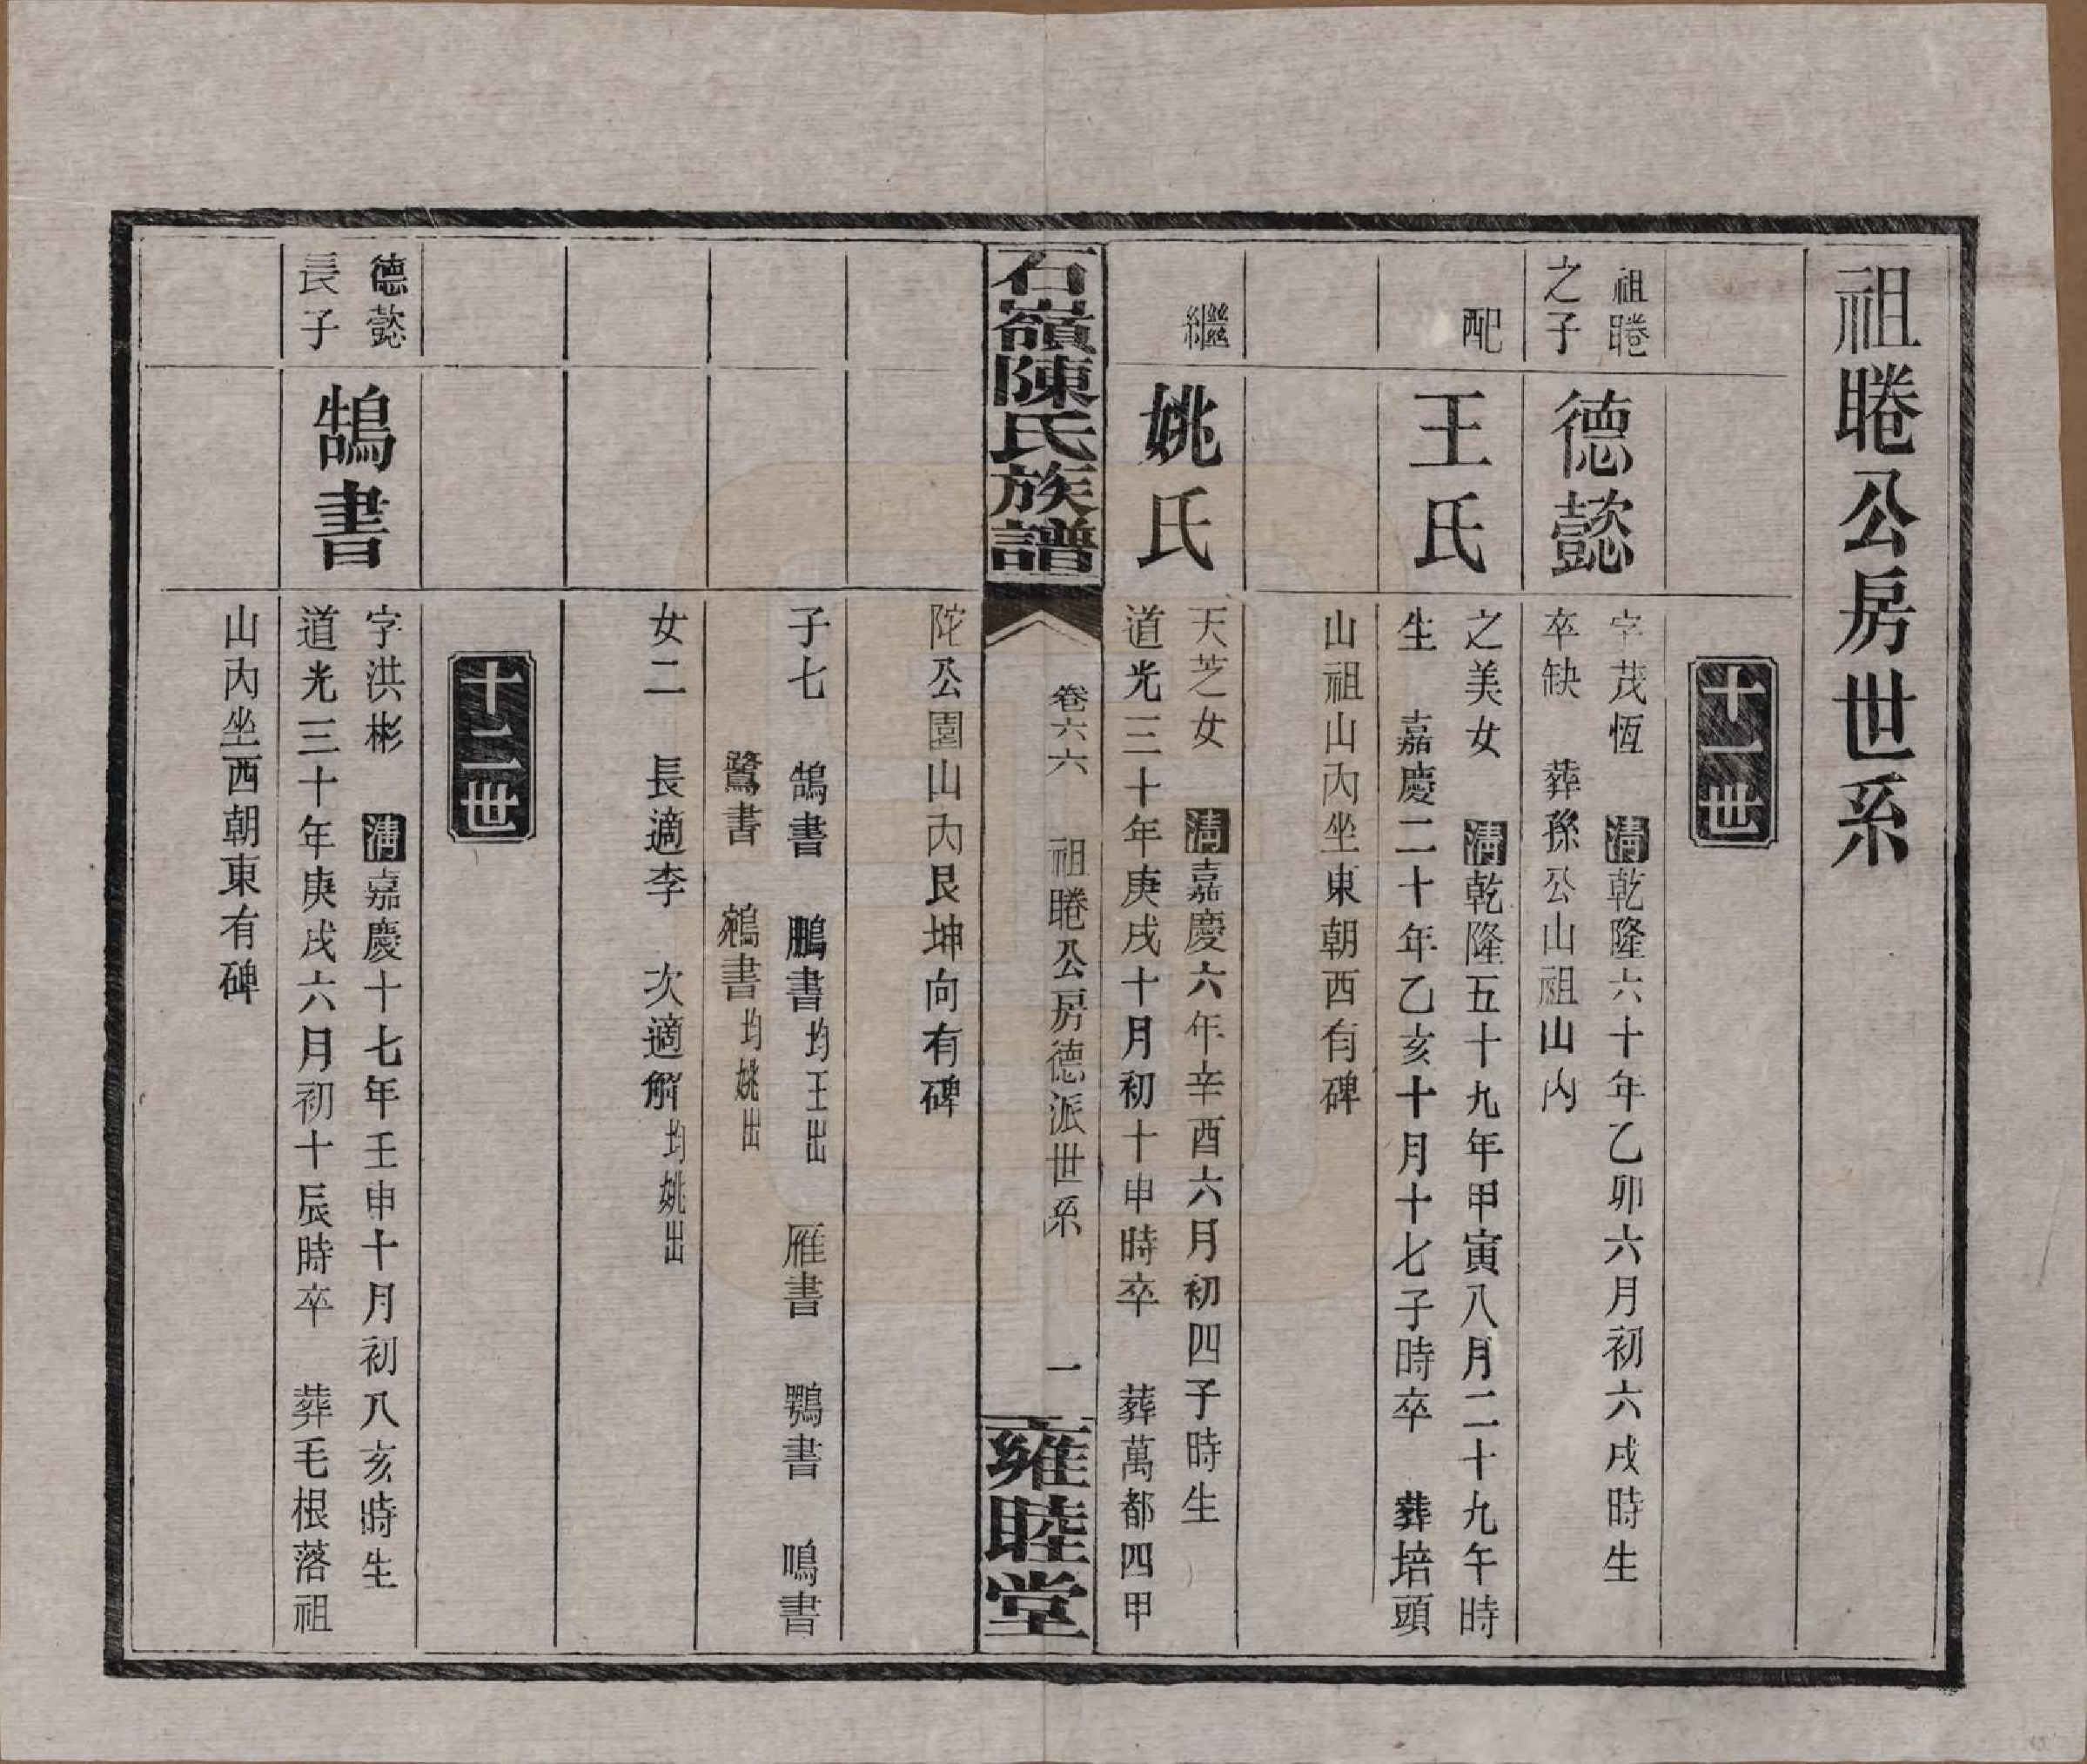 祖睠公房世系
十一世
祖睠
之子
德懿
字茂恆 清乾隆六十年乙卯六月初六戌時生
卒缺 葬孫公山祖山內
配
王氏
之美女 清乾隆五十九年甲寅八月二十九午時
生 嘉慶二十年乙亥十月十七子時卒 葬培頭
山祖山內坐東朝西有碑
繼
姚氏
天芝女 清嘉慶六年辛酉六月初四子時生
道光三十年庚戌十月初十申時卒 葬萬都四甲
石嶺陳氏族譜
卷六六 祖睠公房德派世系 一
雍睦堂
陀公園山內艮坤向有碑
子七 鵠書 鵬書均王出 雁書 鶚書 鳴書
鷺書 鵷書均姚出
女二 長適李 次適解均姚出
十二世
德懿
長子
鵠書
字洪彬 清嘉慶十七年壬申十月初八亥時生
道光三十年庚戌六月初十辰時卒 葬毛根落祖
山內坐西朝東有碑